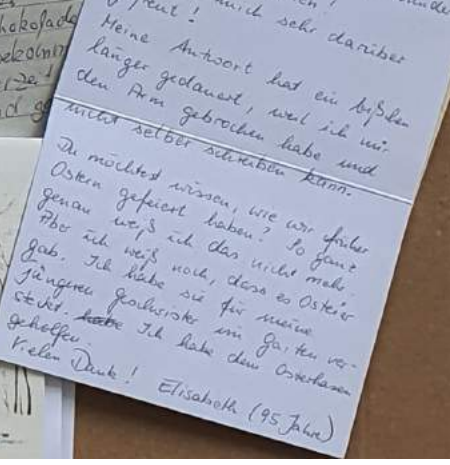 hokolade
mich sehr darüber
Meine Antwort hat ein bißchen
länger gedauert, weil ich mir
den Arm gebrochen habe und
nicht selber schreiben kann.
Du möchtest wissen, wie wir früher
Ostern gefeiert haben? So ganz
genau weiß ich das nicht mehr.
Aber ich weiß noch, dass es Osteier
gab. Ich habe sie für meine
jüngeren Geschwister im Garten ver-
steckt. habe Ich habe dem Osterhasen
geholfen.
Vielen Dank!
Elisabeth (95 Jahre)